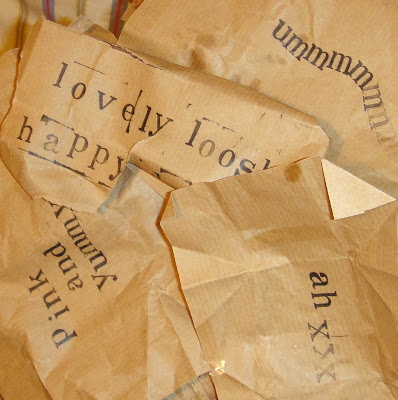 ummmmmm
lovely loosh
happy
pink
and
yummy
ah xxx